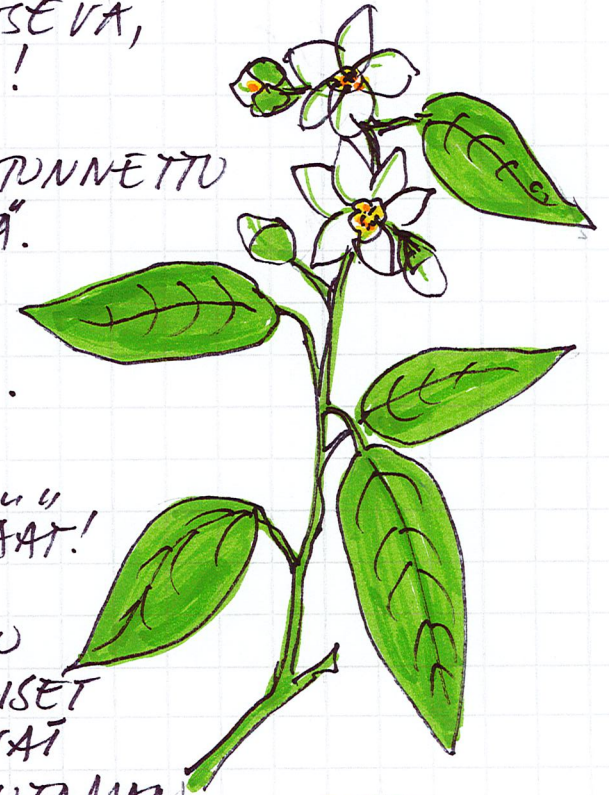 SEVA,
!
TUNNETTU
Ä.
.
ÄÄT!
U
ISET
SAI